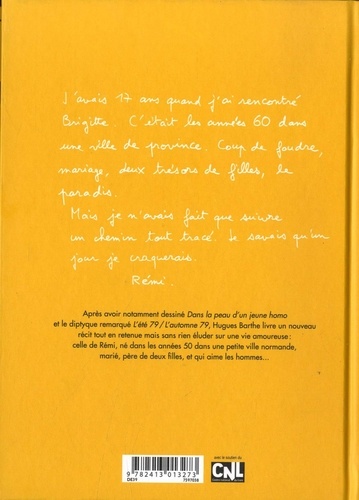 J'avais 17 ans quand j'ai rencontré
Brigitte. C'était les années 60 dans
une ville de province. Coup de foudre,
mariage, deux trésors de filles, le
paradis.
Mais je n'avais fait que suivre
un chemin tout tracé. Je savais qu'un
jour je craquerais.
Rémi.
Après avoir notamment dessiné Dans la peau d'un jeune homo
et le diptyque remarqué L'été 79 / L'automne 79, Hugues Barthe livre un nouveau
récit tout en retenue mais sans rien éluder sur une vie amoureuse :
celle de Rémi, né dans les années 50 dans une petite ville normande,
marié, père de deux filles, et qui aime les hommes...
9 782413 013273
DB39 7597858
avec le soutien du
CNL